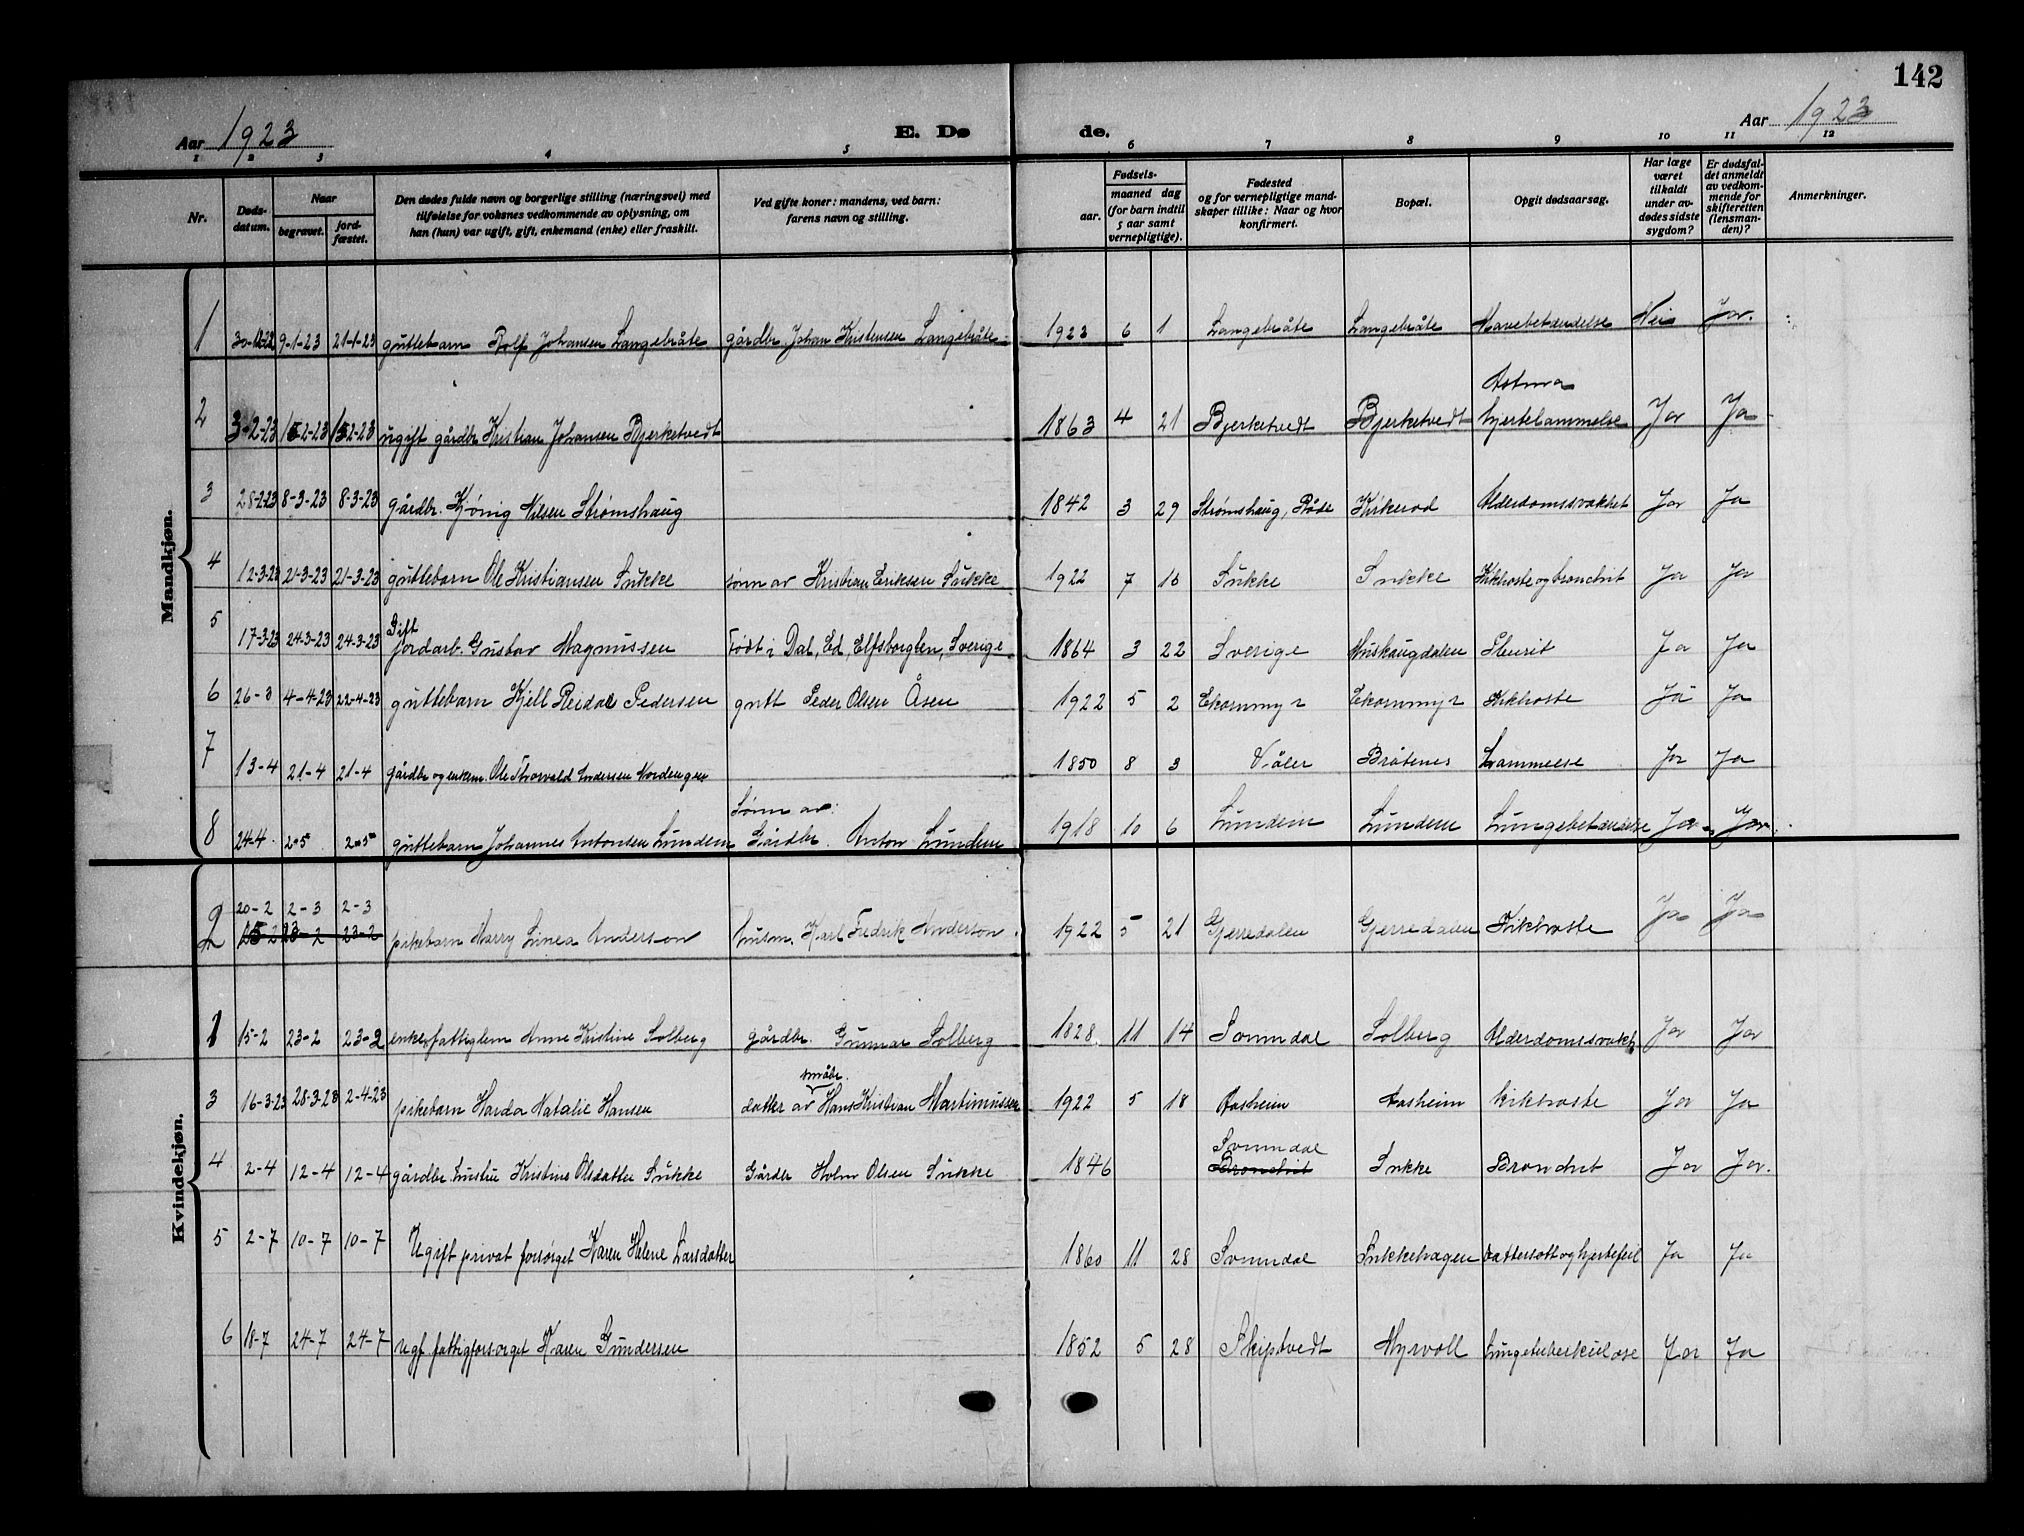 142
Aar 1923 E. Dø de. Aar 1923
1 2 3 4 5 6 7 8 9 10 11 12
Nr. Døds-datum. Naar begravet. jord-fæstet. Den dødes fulde navn og borgerlige stilling (næringsvei) med tilføielse for voksnes vedkommende av oplysning, om han (hun) var ugift, gift, enkemand (enke) eller fraskilt. Ved gifte koner: mandens, ved barn: farens navn og stilling. Fødsels- aar. maaned dag (for barn indtil 5 aar samt vernepligtige). Fødested og for vernepligtige mand-skaper tillike: Naar og hvor konfirmert. Bopæl. Opgit dødsaarsag. Har læge været tilkaldt under av-dødes sidste sygdom? Er dødsfal-det anmeldt av vedkom-mende for skifteretten (lensman-den)? Anmerkninger.
Mandkjøn.
1 30-12-22 9-1-23 21-1-23 guttebarn Rolf Johansen Langebråte gårdbr. Johan Kristensen Langebråte 1923 6 1 Langebråte Langebråte Mavebetændelse Nei Ja.
Astma
2 3-2-23 15-2-23 15-2-23 ugift gårdbr Kristian Johansen Bjerketvedt 1863 4 21 Bjerketvedt Bjerketvedt hjertelammelse Ja Ja
3 28-2-23 8-3-23 8-3-23 gårdbr. Kjönig Nilsen Strømshaug 1842 3 29 Strømshaug, Råde Kirkerød Alderdomssvakhet Ja Ja
4 12-3-23 21-3-23 21-3-23 guttebarn Ole Kristiansen Sukke sønn av Kristian Eriksen Sukke 1922 7 10 Sukke Sukke Kikhoste og bronchit Ja Ja
Gift
5 17-3-23 24-3-23 24-3-23 jordarb. Gustav Magnussen Født i Dal, Ed, Elfsborglen, Sverige 1864 3 22 Sverige Huskaugdalen Pleurit Ja Ja
6 26-3 4-4-23 22-4-23 guttebarn Kjell Reidar Pedersen gutt Peder Olsen Åsen 1922 5 2 Ekornmyr Ekornmyr Kikhoste Ja Ja
7 13-4 21-4 21-4 gårdbr og enkem. Ole Thorvald Andersen Nordengen 1850 8 3 Våler Bråtenes Lammelse Ja Ja
Sønn av
8 24-4 2-5 2-5 guttebarn Johannes Antonsen Lundem Gårdbr. Anton Lundem 1918 10 6 Lundem Lundem Lungebetændelse Ja Ja
Kvindekjøn.
20-2 2-3 2-3
2 15-2 23-2 23-2 pikebarn Marry Linea Anderson husm. Karl Fredrik Anderson. 1922 5 21 Gjerredalen Gjerredalen Kikhoste Ja Ja
1 15-2 23-2 23-2 enke fattiglem Anne Kristine Solberg gårdbr. Gunnar Solberg 1828 11 14 Svinndal Solberg Alderdomssvakt Ja Ja
småbr.
3 16-3-23 28-3-23 2-4-23 pikebarn Harda Natalie Hansen datter av Hans Kristian Martinussen 1922 5 18 Aasheim Aasheim kikhoste Ja Ja
Svinndal
4 2-4 12-4 12-4 gårdbr. hustru Kristine Olsdatter Sukke Gårdbr Holm Olsen Sukke 1846 Bronchit Sukke Bronchit Ja Ja.
5 2-7 10-7 10-7 Ugift privat forsørget Karen Helene Larsdatter 1860 11 28 Svinndal Sukkehagen Vattersott og hjertefeil Ja Ja
6 18-7 24-7 24-7 ugf. fattigforsorget Karen Gundersen 1852 5 28 Skiptvedt Myrvoll Lungetuberkulose Ja Ja